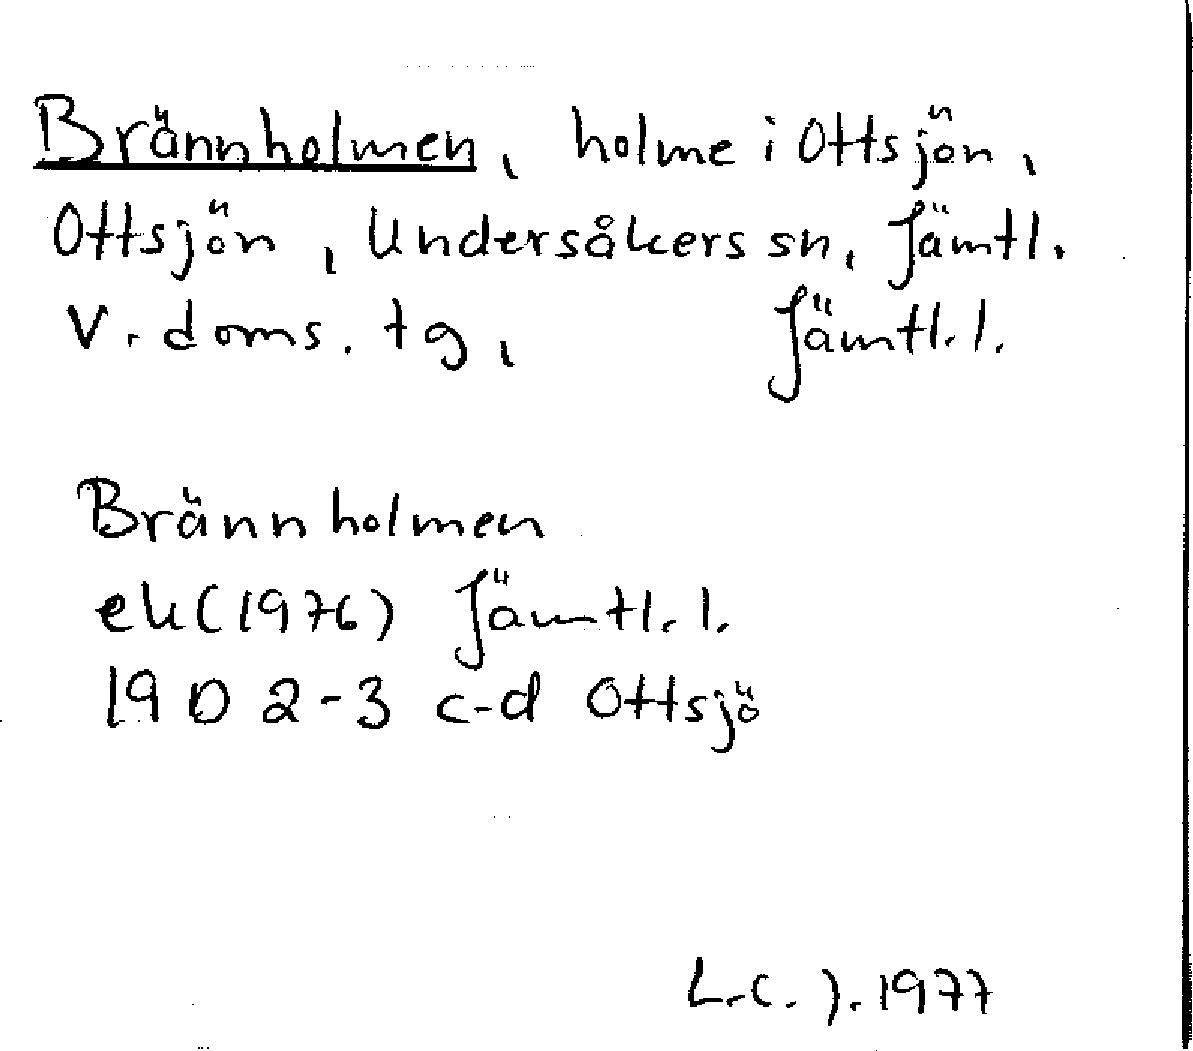 Brännholmen, holme i Ottsjön,
Ottsjön, Undersåkers sn, Jämtl.
V. doms. tg, Jämtl. l.
Brännholmen
ek (1976) Jämtl. l.
19 D 2-3 c-d Ottsjö
L.C. J. 1977